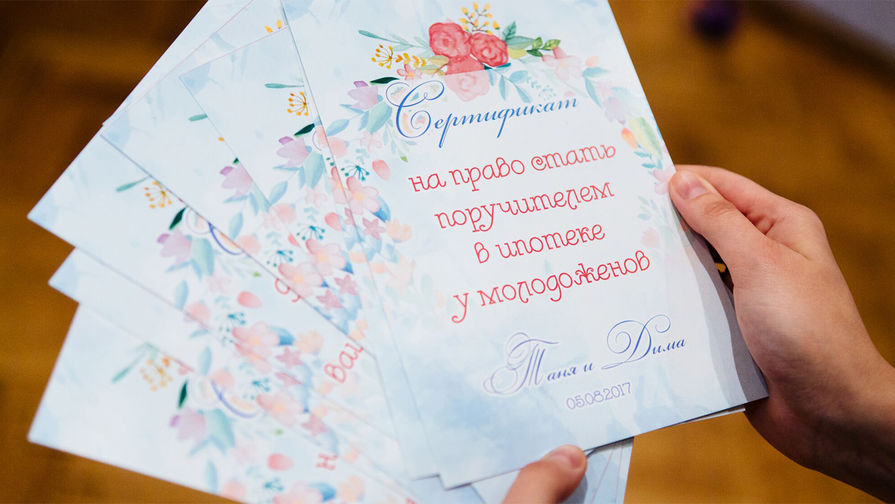 Сертификат
на право стать
поручителем
в ипотеке
у молодоженов
Таня и Дима
05.08.2017